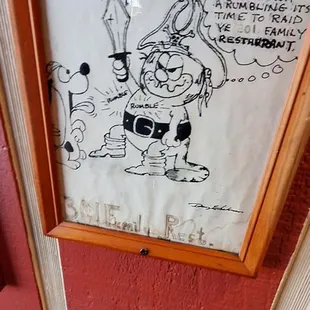 A RUMBLING IT'S
TIME TO RAID
YE 301 FAMILY
RESTAURANT.
RUMBLE
RUMBLE
301 Family Rest.